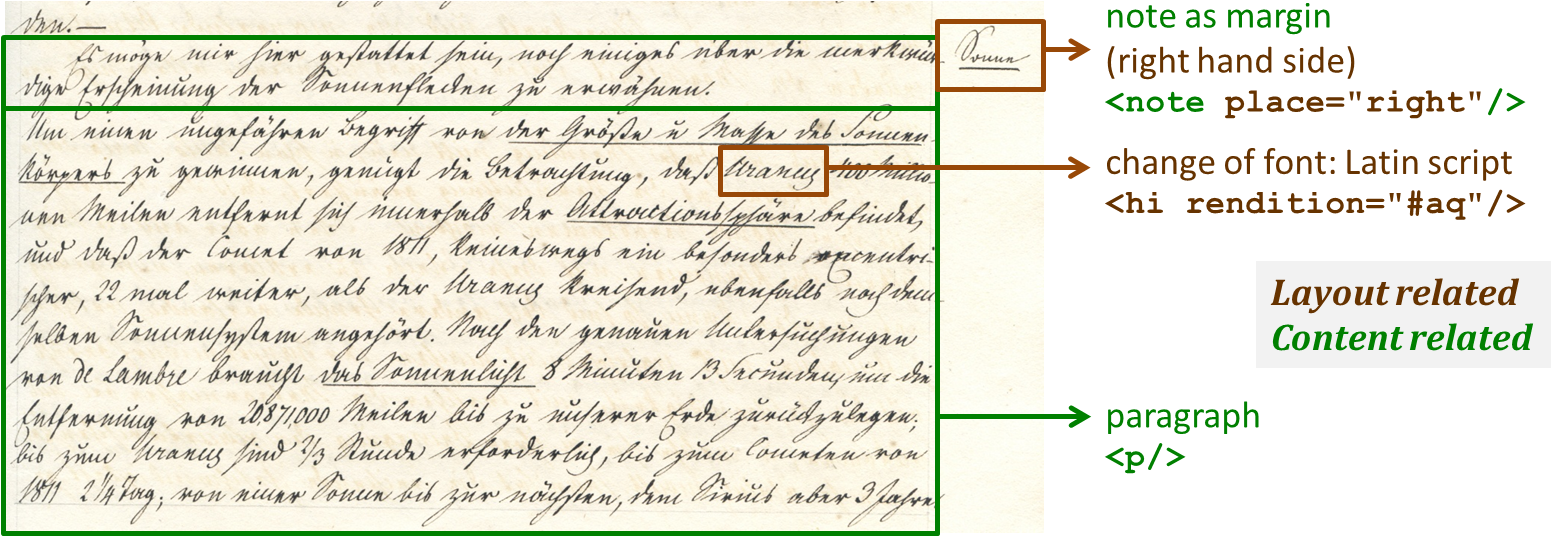 den.—
Es möge mir hier gestattet sein, noch einiges über die merkwür-
dige Erscheinung der Sonnenflecken zu erwähnen.
Um einen ungefähren Begriff von der Größe u Masse des Sonnen-
körpers zu gewinnen, genügt die Betrachtung, daß Uranus 400 Millio-
nen Meilen entfernt sich innerhalb der Attractionssphäre befindet,
und daß der Comet von 1811, keineswegs ein besonders excentri-
scher, 22 mal weiter, als der Uranus kreisend, ebenfalls noch dem-
selben Sonnensystem angehört. Nach den genauen Untersuchungen
von de Lambre braucht das Sonnenlicht 8 Minuten 13 Secunden, um die
Entfernung von 20871,000 Meilen bis zu unserer Erde zurückzulegen;
bis zum Uranus sind 2/3 Stunde erforderlich, bis zum Cometen von
1811 2 1/4 Tag; von einer Sonne bis zur nächsten, dem Sirius aber 3 Jahre.
Sonne
note as margin
(right hand side)
<note place="right"/>
change of font: Latin script
<hi rendition="#aq"/>
Layout related
Content related
paragraph
<p/>